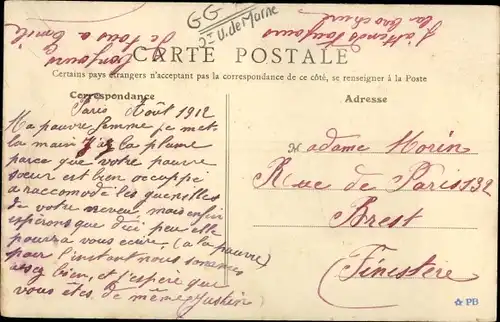 GG
Dt V. de Marne
j'attends toujours
la brochure
Je suis à
toujours
Émile
CARTE POSTALE
Certains pays étrangers n'acceptant pas la correspondance de ce côté, se renseigner à la Poste
Correspondance
Adresse
Paris Août 1912
Ma pauvre femme je met
la main à la plume
parce que votre pauvre
sœur est bien occupé
a raccomodé les guenilles
de votre neveu, mais enfin
espérons que d'ici peu elle
pourra vous ecrire, (a la pauvre)
pour l'instant nous sommes
assez bien, et j'espère que
vous êtes de même Justin
Madame Morin
Rue de Paris 132
Brest
(Finistère)
PB